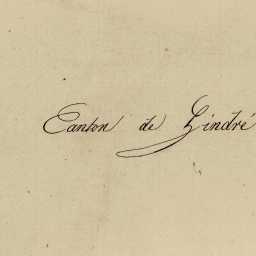 Canton de Lindré